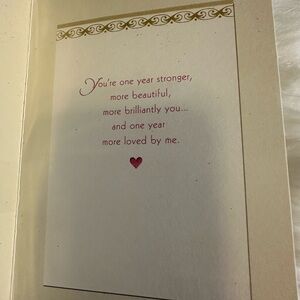 You're one year stronger,
more beautiful,
more brilliantly you...
and one year
more loved by me.